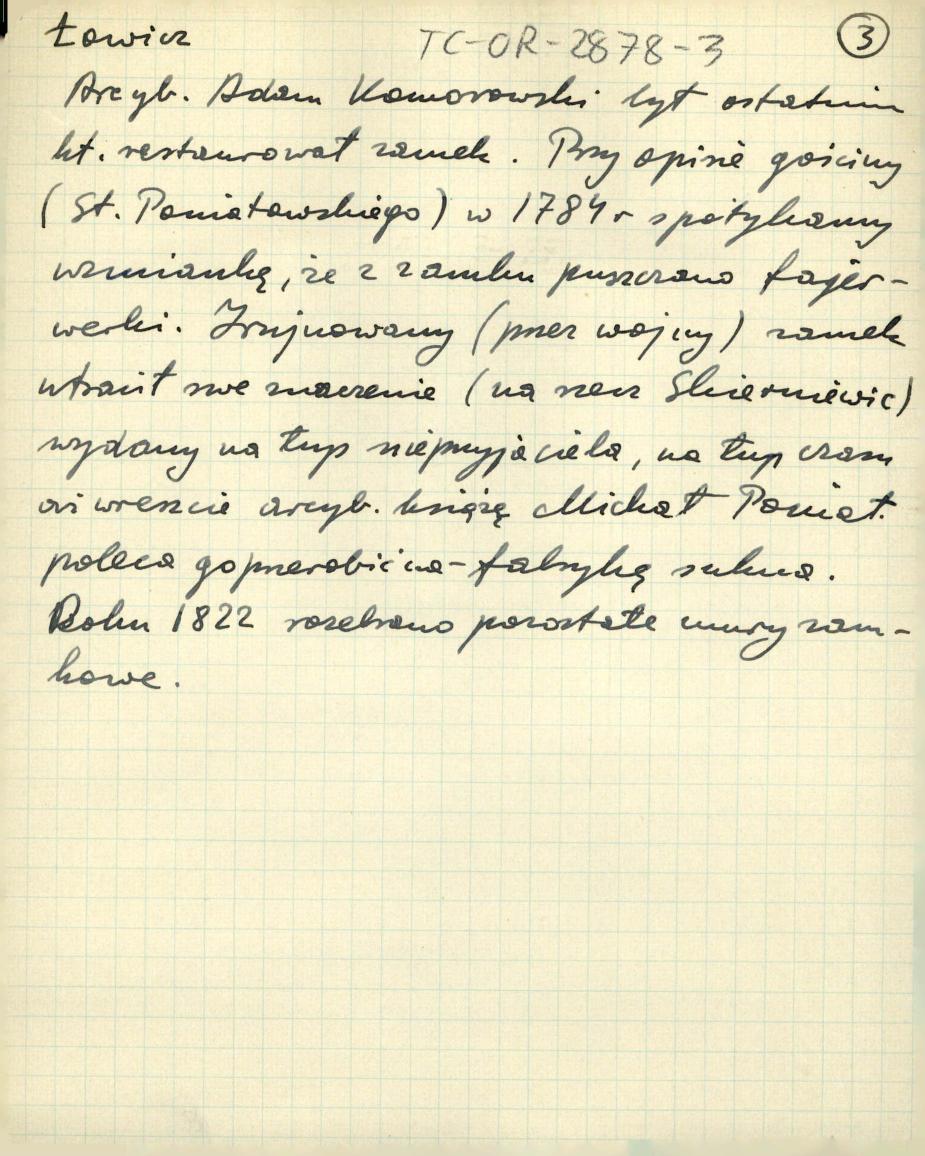 Łowicz TC-OR-2878-3 3
Arcyb. Adam Komorowski był ostatnim
kt. restaurował zamek. Przy opisie gościny
(St. Poniatowskiego) w 1784 r spotykamy
wzmiankę, że z zamku puszczano fajer-
werki. Zrujnowany (przez wojny) zamek
utracił swe znaczenie (na rzecz Skierniewic)
wydany na łup nieprzyjaciela, na łup czasu
aż wreszcie arcyb. książę Michał Poniat.
poleca go przerobić na - fabrykę sukna.
Roku 1822 rozebrano pozostałe mury zam-
kowe.